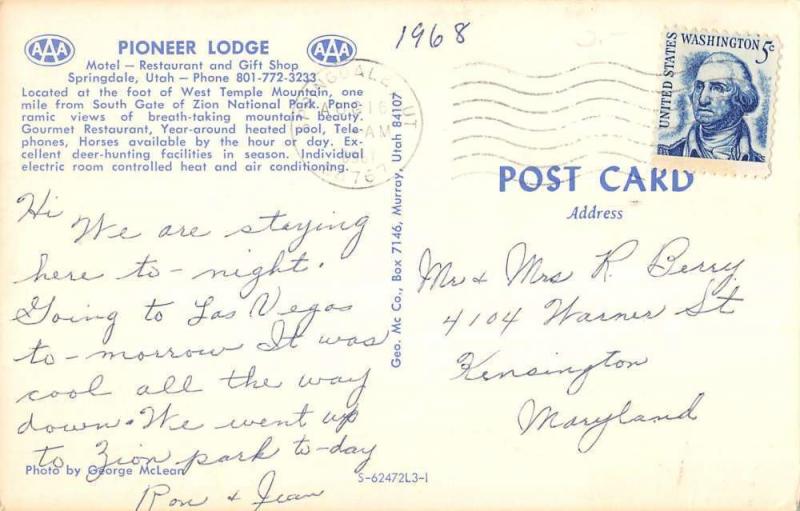 1968
AAA PIONEER LODGE AAA
Motel — Restaurant and Gift Shop
Springdale, Utah — Phone 801-772-3233
Located at the foot of West Temple Mountain, one
mile from South Gate of Zion National Park. Pano-
ramic views of breath-taking mountain beauty.
Gourmet Restaurant, Year-around heated pool, Tele-
phones, Horses available by the hour or day. Ex-
cellent deer-hunting facilities in season. Individual
electric room controlled heat and air conditioning.
Hi
We are staying
here to-night.
Going to Las Vegas
to-morrow It was
cool all the way
down. We went up
to Zion park to-day
Ron & Jean
Photo by George McLean
Geo. Mc Co., Box 7146, Murray, Utah 84107
S-62472L3-1
UNITED STATES
WASHINGTON 5c
16
AM
POST CARD
Address
Mr & Mrs R. Berry
4104 Warner St
Kensington
Maryland